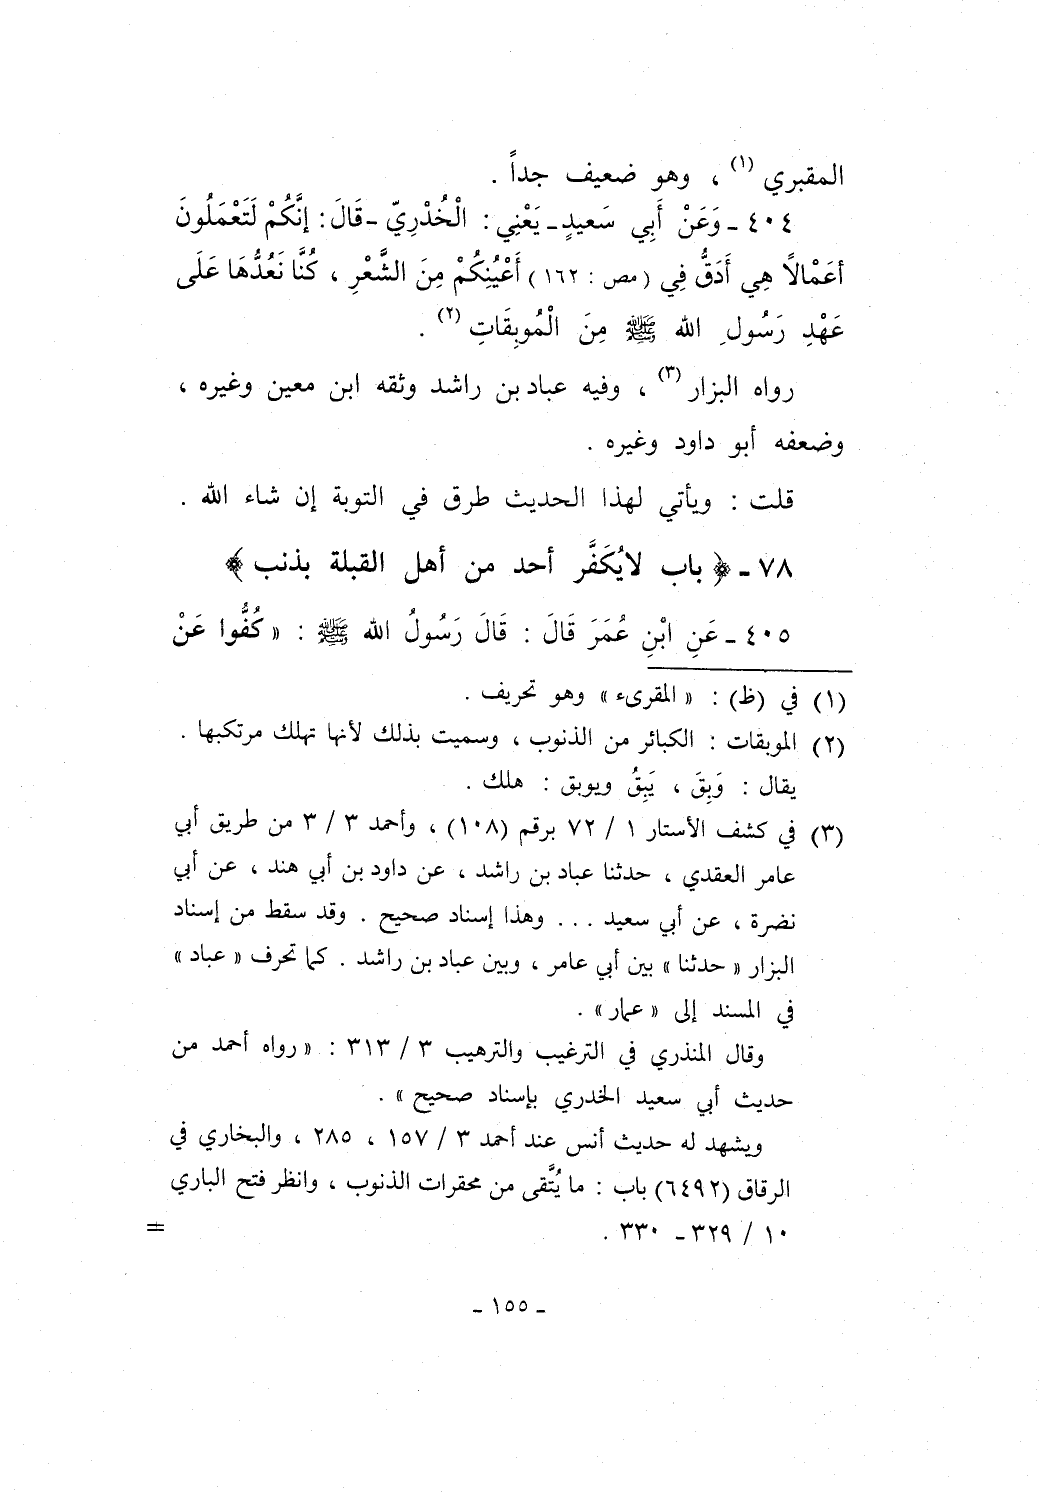 المقبري (١) ، وهو ضعيف جداً .
٤٠٤ ـ وَعَنْ أَبِي سَعيدٍ ـ يَعْنِي : الْخُدْرِيّ ـ قَالَ : إنَّكُمْ لَتَعْمَلُونَ
أعَمْالاً هِي أَدَقُّ فِي ( مص : ١٦٢ ) أَعْيُنِكُمْ مِنَ الشَّعْرِ ، كُنَّا نَعُدُّهَا عَلَى
عَهْدِ رَسُولِ الله ﷺ مِنَ الْمُوبِقَاتِ (٢) .
رواه البزار (٣) ، وفيه عباد بن راشد وثقه ابن معين وغيره ،
وضعفه أبو داود وغيره .
قلت : ويأتي لهذا الحديث طرق في التوبة إن شاء الله .
٧٨ ـ ﴿ باب لايُكَفَّر أحد من أهل القبلة بذنب ﴾
٤٠٥ ـ عَنِ ابْنِ عُمَرَ قَالَ : قَالَ رَسُولُ الله ﷺ : « كُفُّوا عَنْ
(١) في (ظ) : « المقرىء » وهو تحريف .
(٢) الموبقات : الكبائر من الذنوب ، وسميت بذلك لأنها تهلك مرتكبها .
يقال : وَبِقَ ، يَبِقُ ويوبق : هلك .
(٣) في كشف الأستار ١ / ٧٢ برقم (١٠٨) ، وأحمد ٣ / ٣ من طريق أبي
عامر العقدي ، حدثنا عباد بن راشد ، عن داود بن أبي هند ، عن أبي
نضرة ، عن أبي سعيد ... وهذا إسناد صحيح . وقد سقط من إسناد
البزار « حدثنا » بين أبي عامر ، وبين عباد بن راشد . كما تحرف « عباد »
في المسند إلى « عمار » .
وقال المنذري في الترغيب والترهيب ٣ / ٣١٣ : « رواه أحمد من
حديث أبي سعيد الخدري بإسناد صحيح » .
ويشهد له حديث أنس عند أحمد ٣ / ١٥٧ ، ٢٨٥ ، والبخاري في
الرقاق (٦٤٩٢) باب : ما يُتَّقى من محقرات الذنوب ، وانظر فتح الباري
١٠ / ٣٢٩ ـ ٣٣٠ . =
ـ ١٥٥ ـ